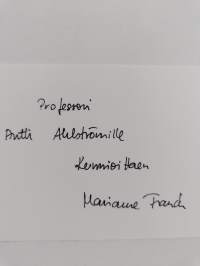 Professori
Pentti Ahlströmille
Kunnioittaen
Marianne